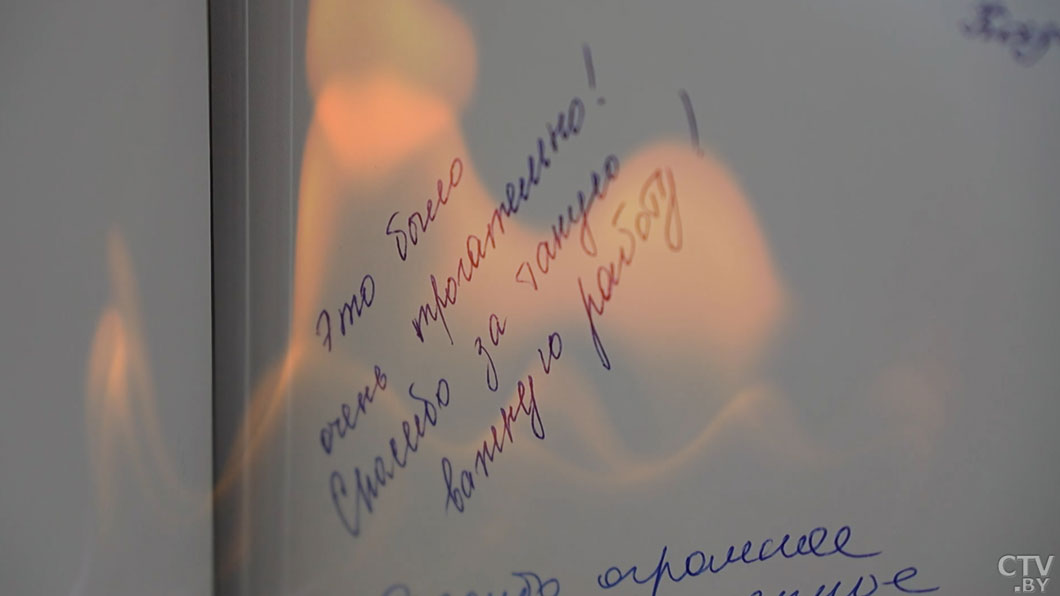 Это было
очень трогательно!
Спасибо за такую
важную работу!
огромное
CTV
.BY